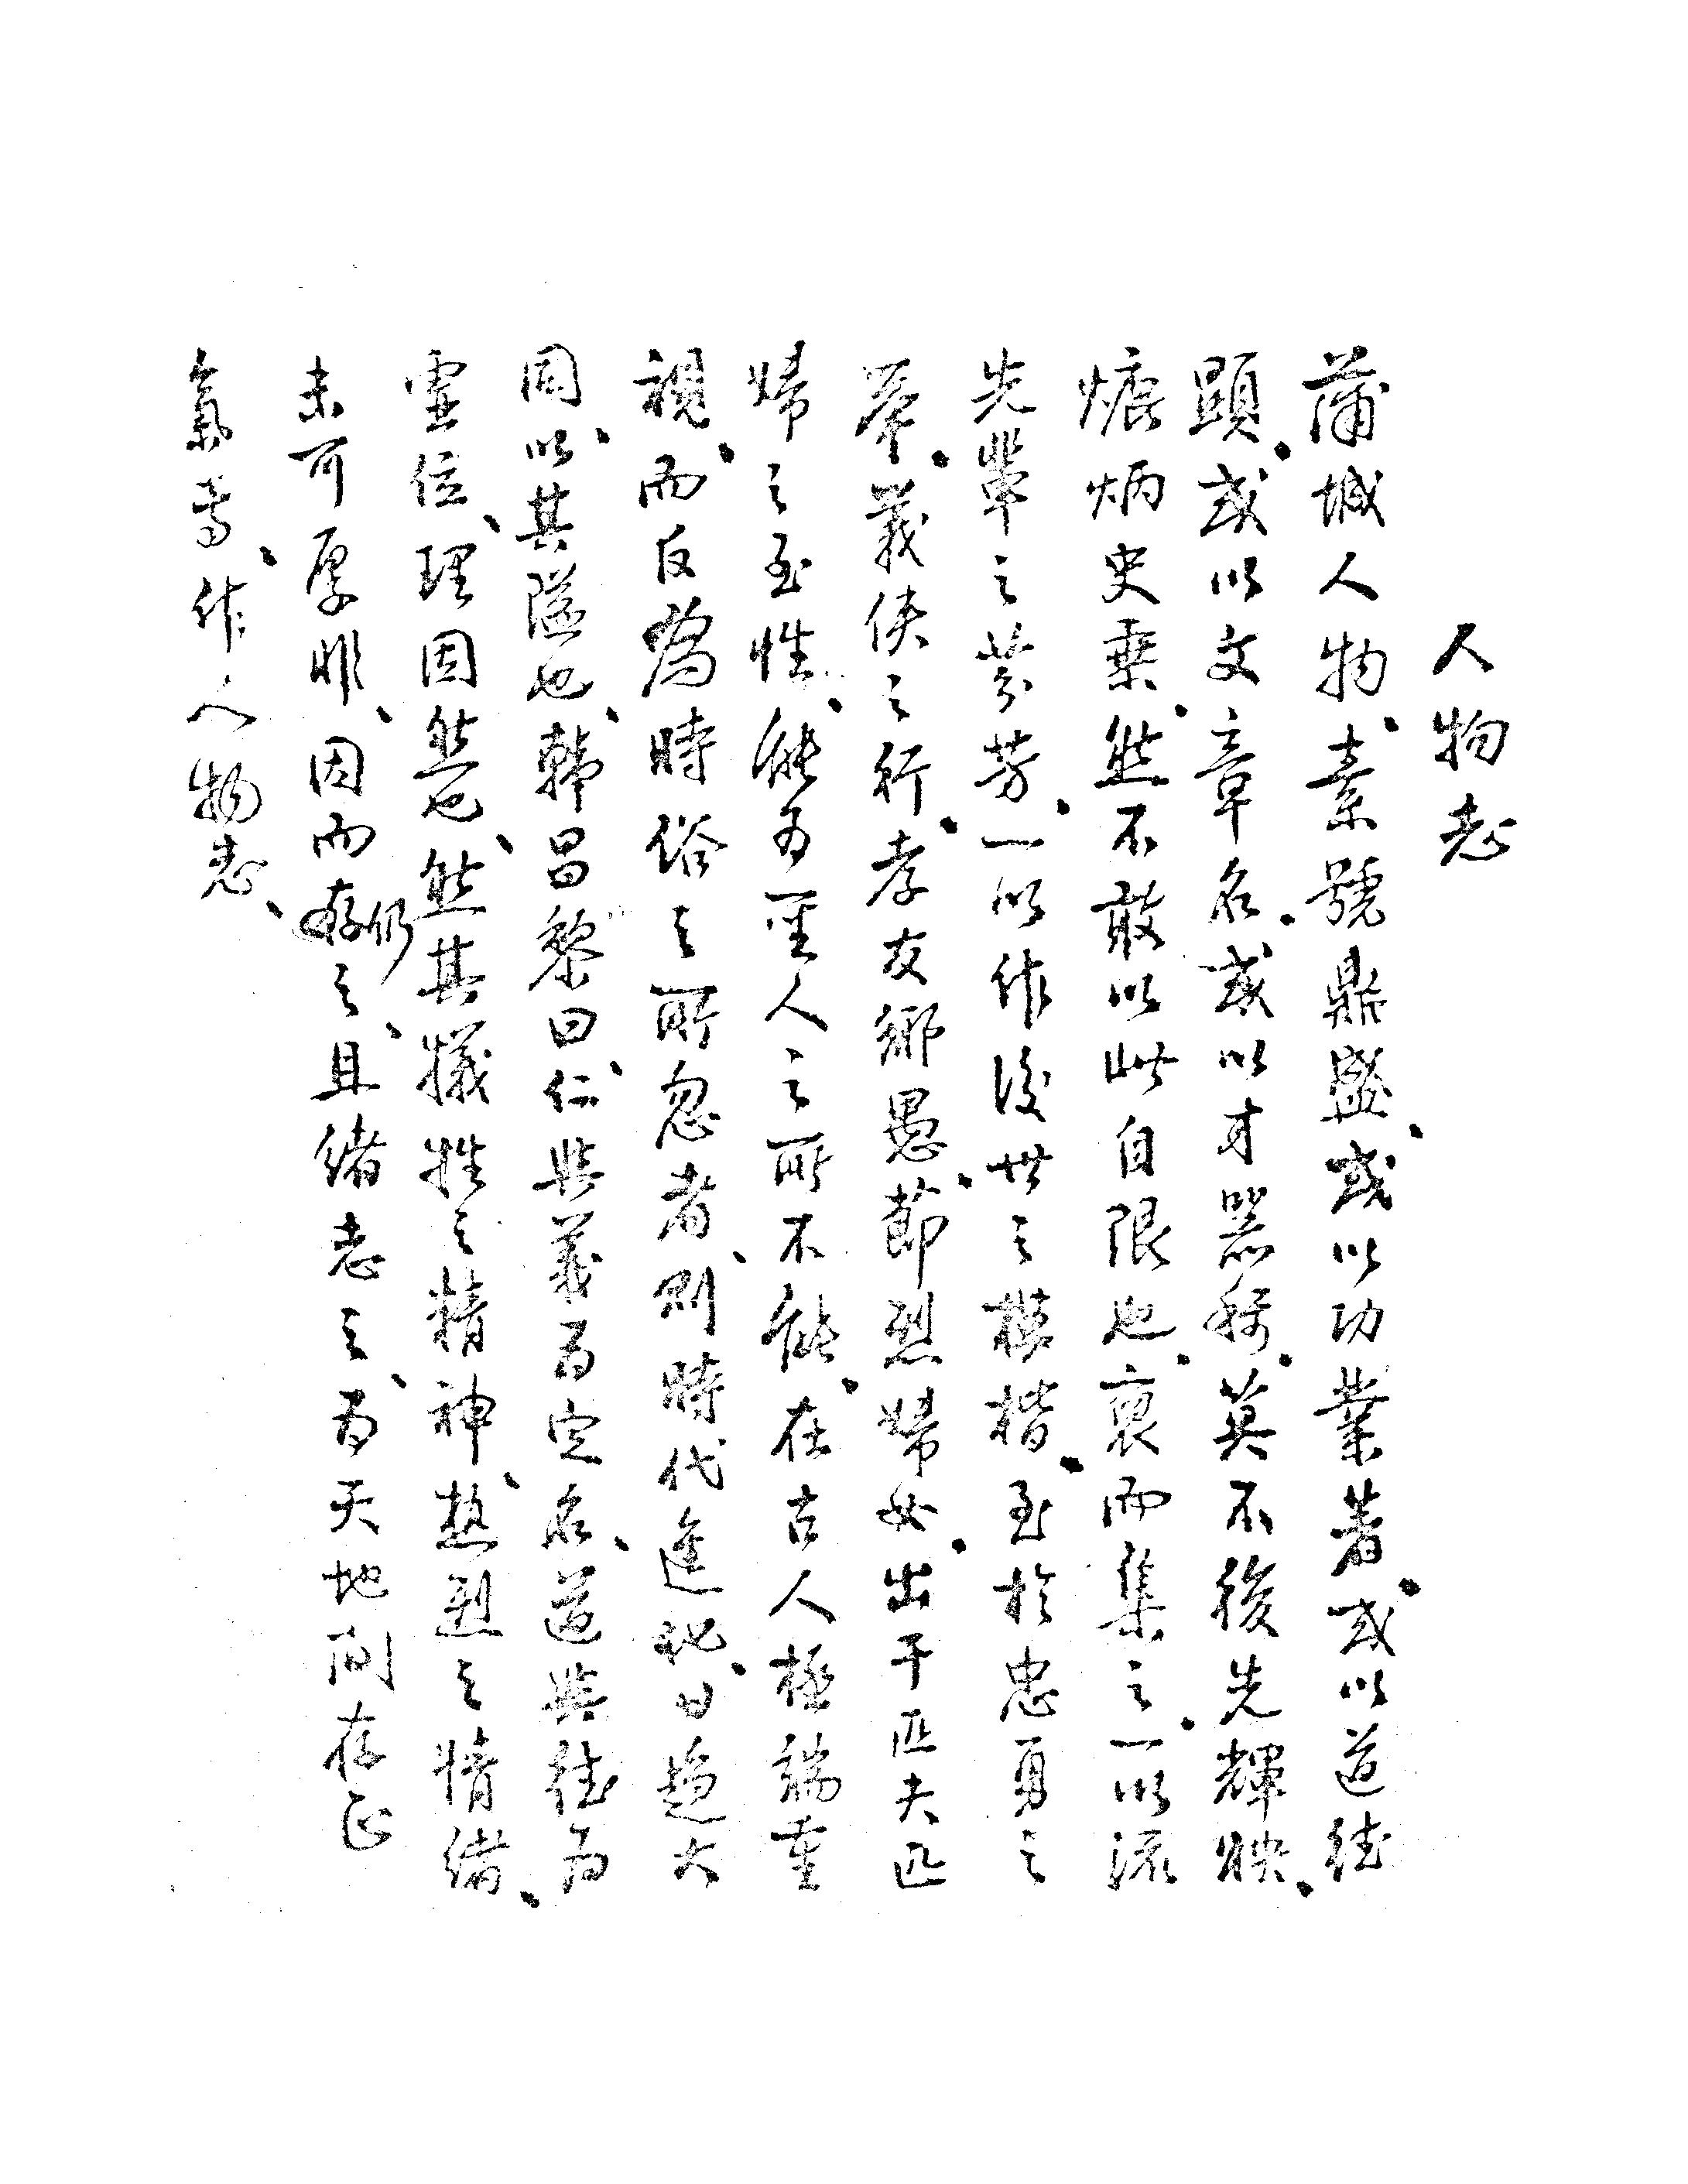 人物志
蒲城人物、素號鼎盛、或以功業著、或以道德
顯、或以文章名、或以才器稱、莫不後先輝映、
焜炳史乘、然不敢以此自限也、裒而集之、一以流
先輩之芬芳、一以作後世之模楷、至於忠勇之
舉、義俠之行、孝友鄉愚、節烈婦女、出于匹夫匹
婦之至性、能为聖人之所不能、在古人極端重
視、而反爲時俗之所忽者、則時代進化、日趨大
同、以其隘也、韓昌黎曰、仁與義为定名、道與德为
虛位、理固然也、然其犧牲之精神、热烈之情緒、
未可厚非、因而仍存之、且緒志之、为天地间存正
氣焉、作人物志、